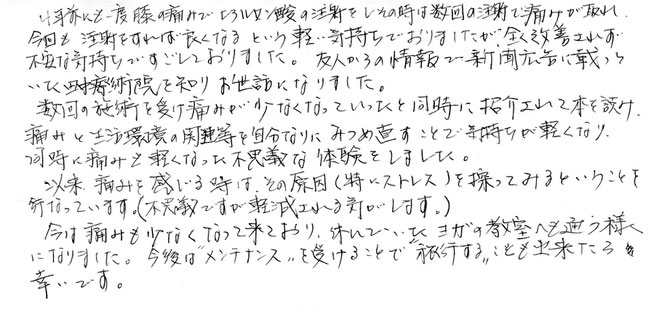 4年前にも一度膝の痛みでヒアルロン酸の注射をしその時は数回の注射で痛みが取れ、
今回も注射をすれば良くなるという軽い気持ちでおりましたが全く改善されず
不安な気持ちですごしておりました。友人からの情報で新聞広告に載って
いた 療術院を知りお世話になりました。
数回の施術を受け痛みが少なくなっていったと同時に紹介されて本を読み、
痛みと生活環境の関連等を自分なりにみつめ直すことで気持ちが軽くなり、
同時に痛みも軽くなった不思議な体験をしました。
以来痛みを感じる時は、その原因(特にストレス)を探ってみるということを
行なっています。(不思議ですが軽減される気がします。)
今は痛みも少なくなって来ており、休んでいたヨガの教室へも通う様
になりました。今後は"メンテナンス"を受けることで"旅行する"ことも出来たら
幸いです。